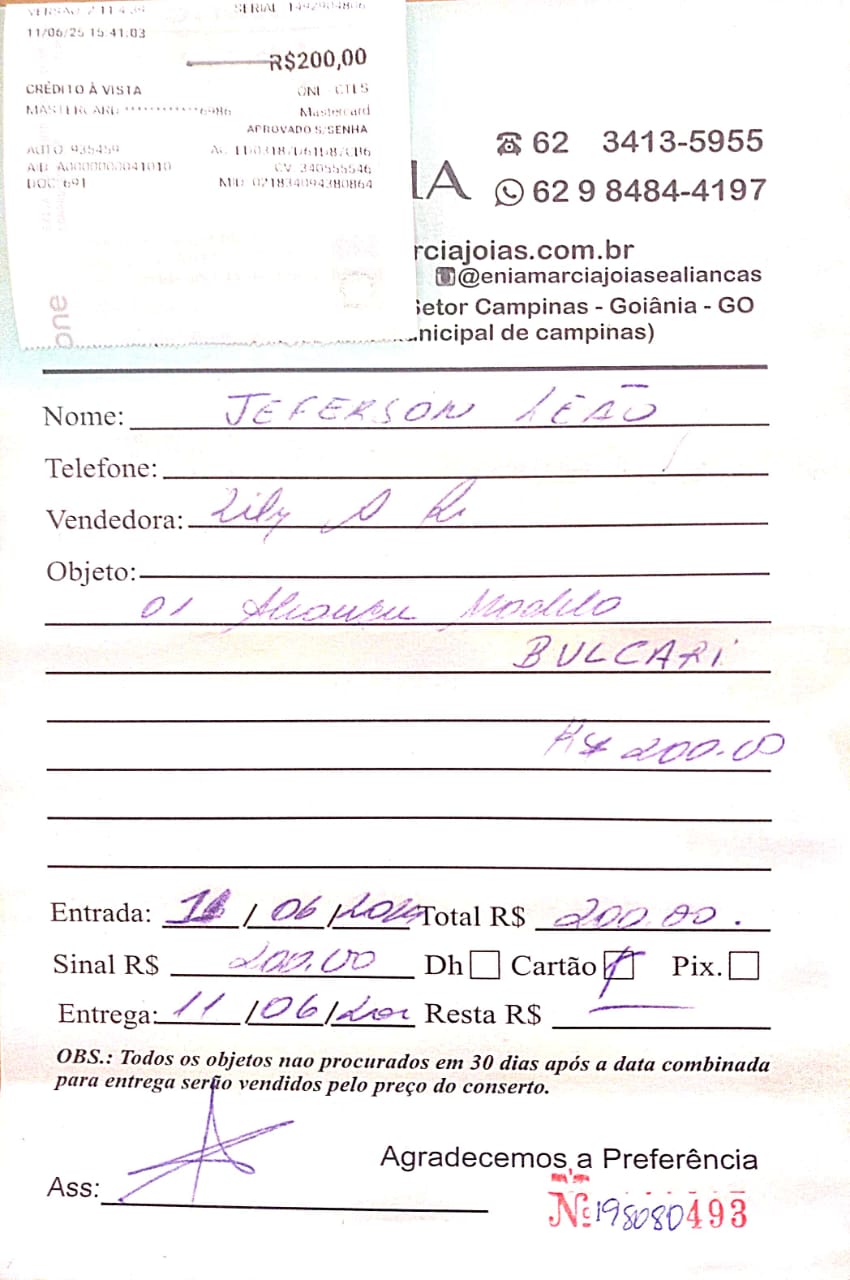 11/06/25 15:41:03
R$200,00
CRÉDITO À VISTA
MASTERCARD ************6986 Mastercard
APROVADO S/SENHA
AUTO 935459
AID A0000000041010 CV 340555546
DOC 691 MID 021834094380864
one
IA
62 3413-5955
62 9 8484-4197
rciajoias.com.br
@eniamarciajoiasealiancas
Setor Campinas - Goiânia - GO
nicipal de campinas)
Nome: JEFERSON LEÃO
Telefone:
Vendedora: Lily
Objeto:
01 Modelo
BULCARI
R$ 200.00
Entrada: 11/06/2025 Total R$ 200.00.
Sinal R$ 200.00 Dh Cartão Pix.
Entrega: 11/06/ Resta R$
OBS.: Todos os objetos nao procurados em 30 dias após a data combinada
para entrega serão vendidos pelo preço do conserto.
Agradecemos a Preferência
Ass:
Nº 198080493